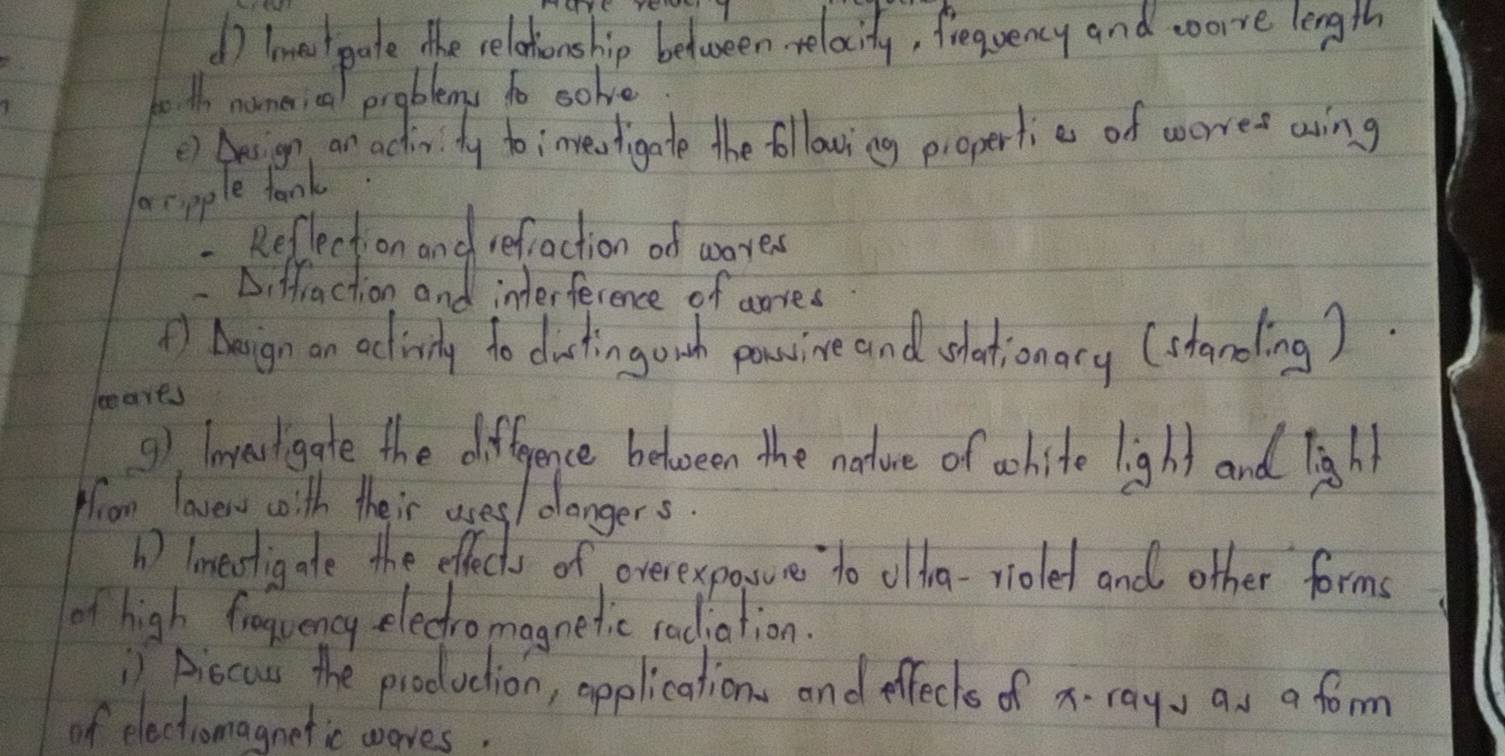 d) Investigate the relationship between velocity, frequency and wave length
with numerical problems to solve.
e) Design an activity to investigate the following properties of waves using
a ripple tank.
- Reflection and refraction of waves
- Diffraction and interference of waves.
f) Design an activity to distinguish and stationary (standing).
waves
g) Investigate the difference between the nature of white light and light
from lasers with their uses/dangers.
h) Investigate the effects of overexposure to ultra-violet and other forms
of high frequency electromagnetic radiation.
i) Discuss the production, applications and effects of x-rays as a form
of electromagnetic waves.